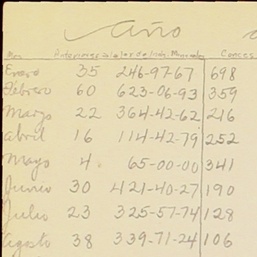 Año
Enero 35 246-97-67 698
Febrero 60 623-06-93 359
Marzo 22 364-42-62 216
abril 16 114-42-79 252
Mayo 4 65-00-00 341
Junio 30 421-40-27 190
Julio 23 325-57-74 128
Agosto 38 339-71-24 106